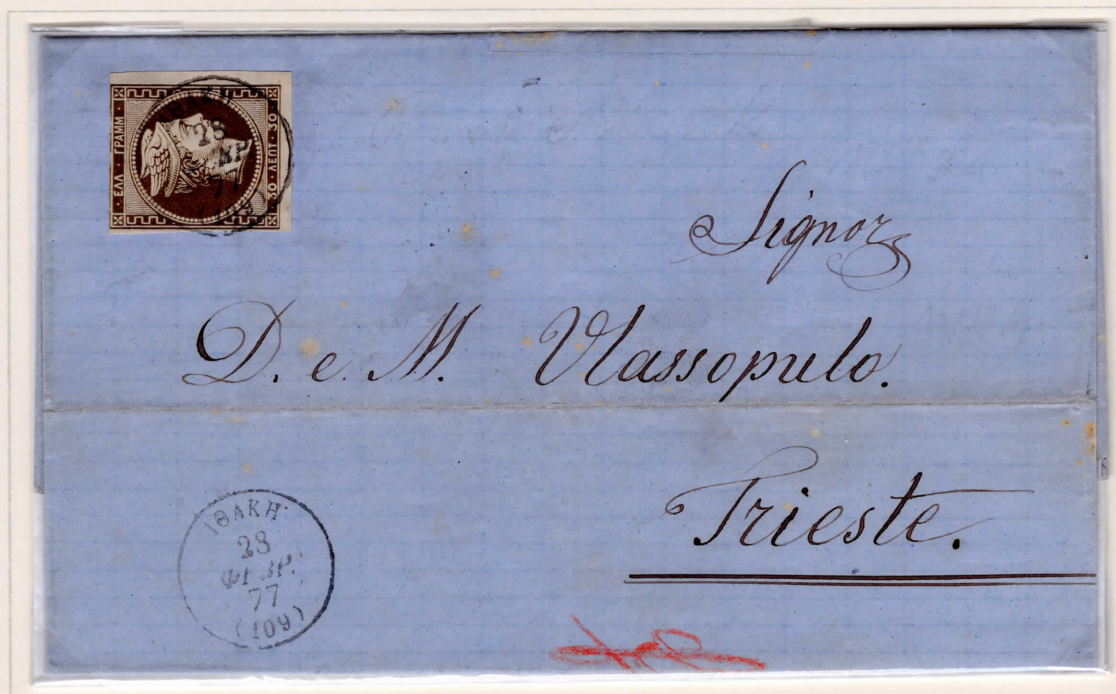 ΕΛΛ · ΓΡΑΜΜ ·
30 · ΛΕΠΤ · 30
28
77
Signor
D. e M. Vlassopulo.
Trieste.
ΙΘΑΚΗ
28
ΦΕΒΡ.
77
(109)